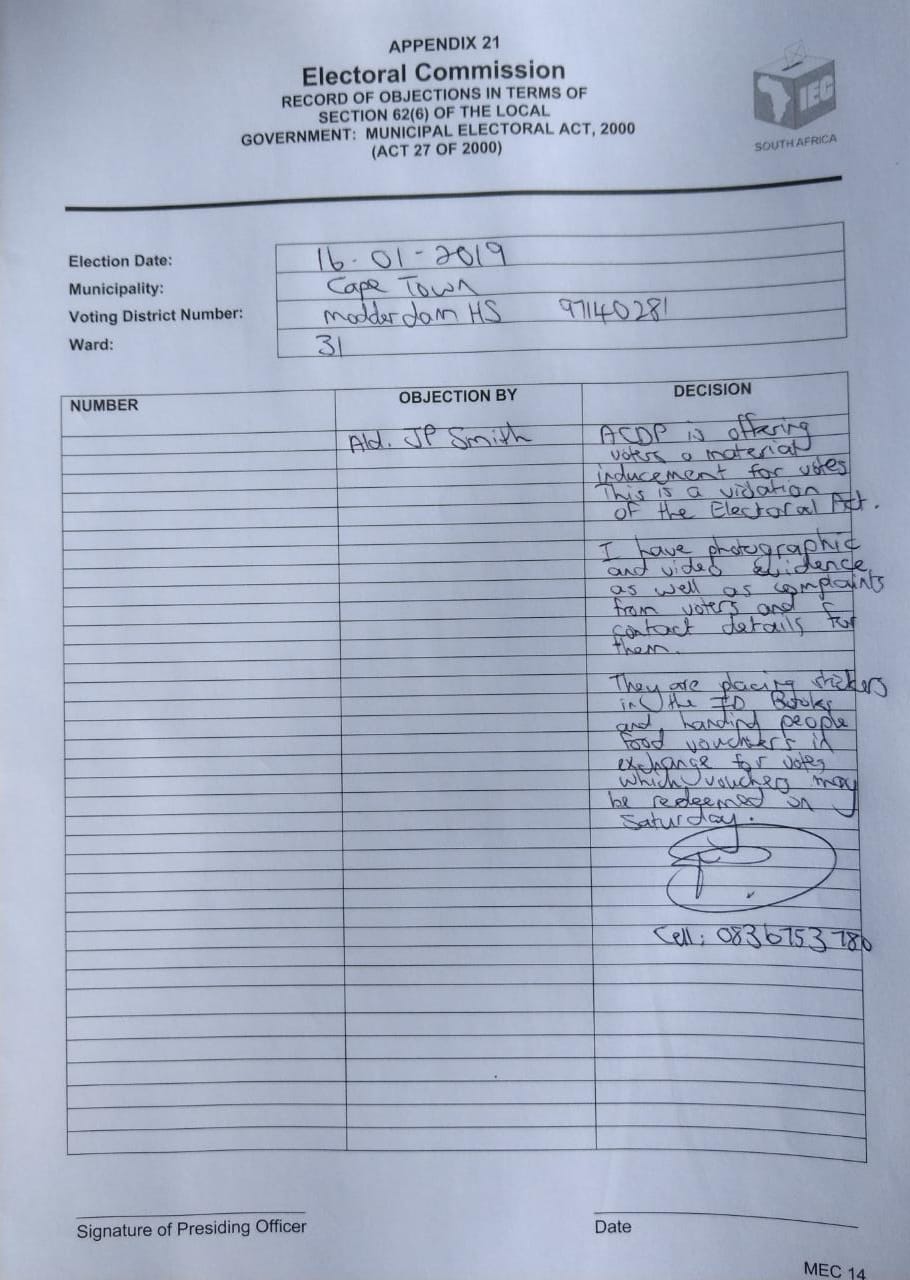 APPENDIX 21
Electoral Commission
RECORD OF OBJECTIONS IN TERMS OF
SECTION 62(6) OF THE LOCAL
GOVERNMENT: MUNICIPAL ELECTORAL ACT, 2000
(ACT 27 OF 2000)
IEC
SOUTH AFRICA
Election Date: 16-01-2019
Municipality: Cape Town
Voting District Number: Modderdam HS 97140281
Ward: 31
NUMBER OBJECTION BY DECISION
Ald. JP Smith ACDP is offering
voters a material
inducement for votes
This is a violation
of the Electoral Act.
I have photographic
and video evidence,
as well as complaints
from voters and
contact details for
them.
They are placing stickers
in the ID Books
and handing people
food vouchers in
exchange for votes,
which vouchers may
be redeemed on
Saturday.
Cell: 0836753780
Signature of Presiding Officer
Date
MEC 14